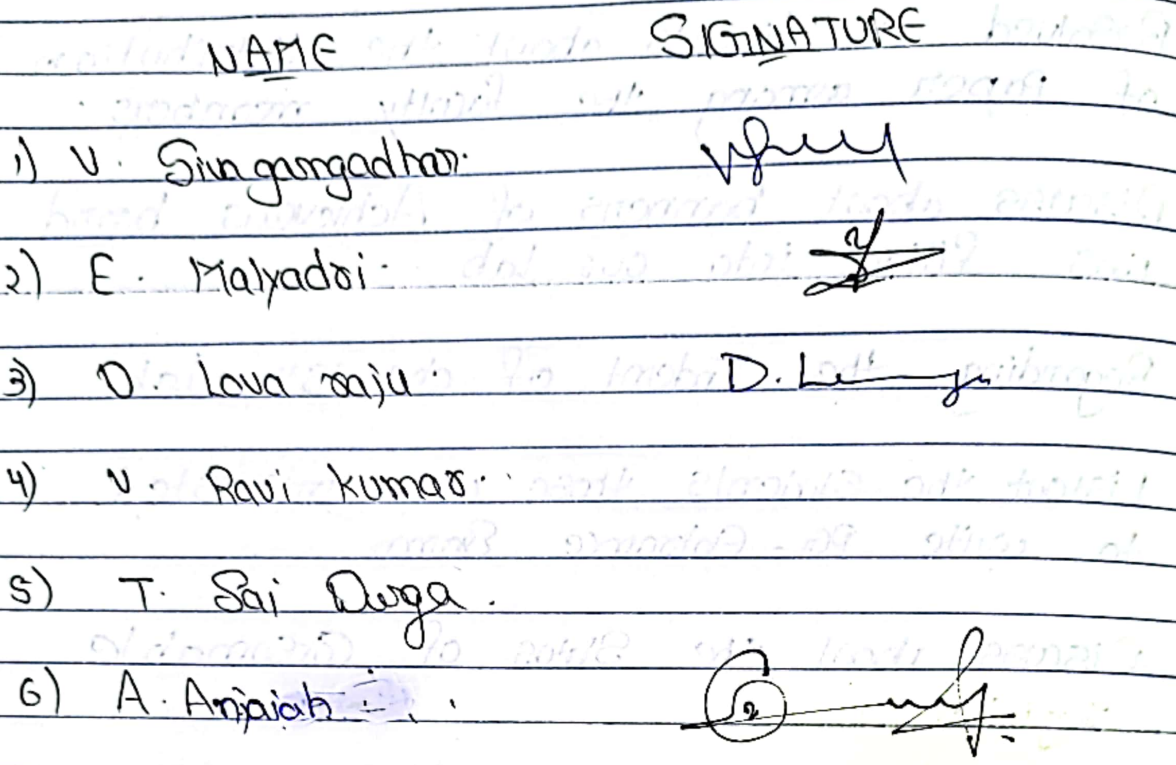 NAME SIGNATURE
1) V. Sivagangadhar.
2) E. Malyadri.
3) D. Lava raju. D. L
4) V. Ravi kumar.
5) T. Sai Durga.
6) A. Anjaiah